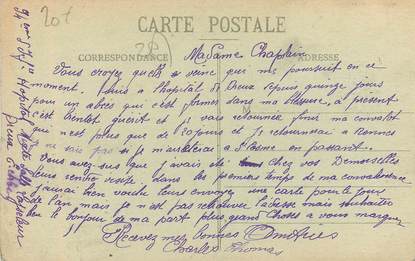 20f
CARTE POSTALE
CORRESPONDANCE
ADRESSE
Madame Chaplain
Vous croyez quelle veine que me poursuit en ce
moment. Suis a l'hopital de Dreux depuis quinze jours
pour un abcès qui c'est formés dans ma blessure, à présent
c'est bientot guerit et je vais retourner finir ma convalot
qui n'est plus que de jours et je retournerai a Rennes
ne sais pas si je m'arreterai a en passant.
Vous avez sus que j'avais été chez vos Demoiselles
leurs rendre visite dans les premiers temps de ma convalescence
j'aurai bien voulu leurs envoyez une carte pour le jour
de l'an mais je n'est pas retrouver l'adresse mais souhaitez
leur le bonjour de ma part plus grand Choses a vous marquer
Recevez mes bonnes Amitiés
Charles Thomas